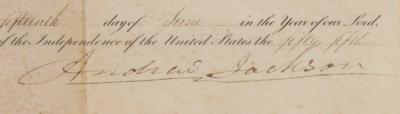 fifteenth day of June in the Year of our Lord.
of the Independence of the United States the fifty fifth
Andrew Jackson